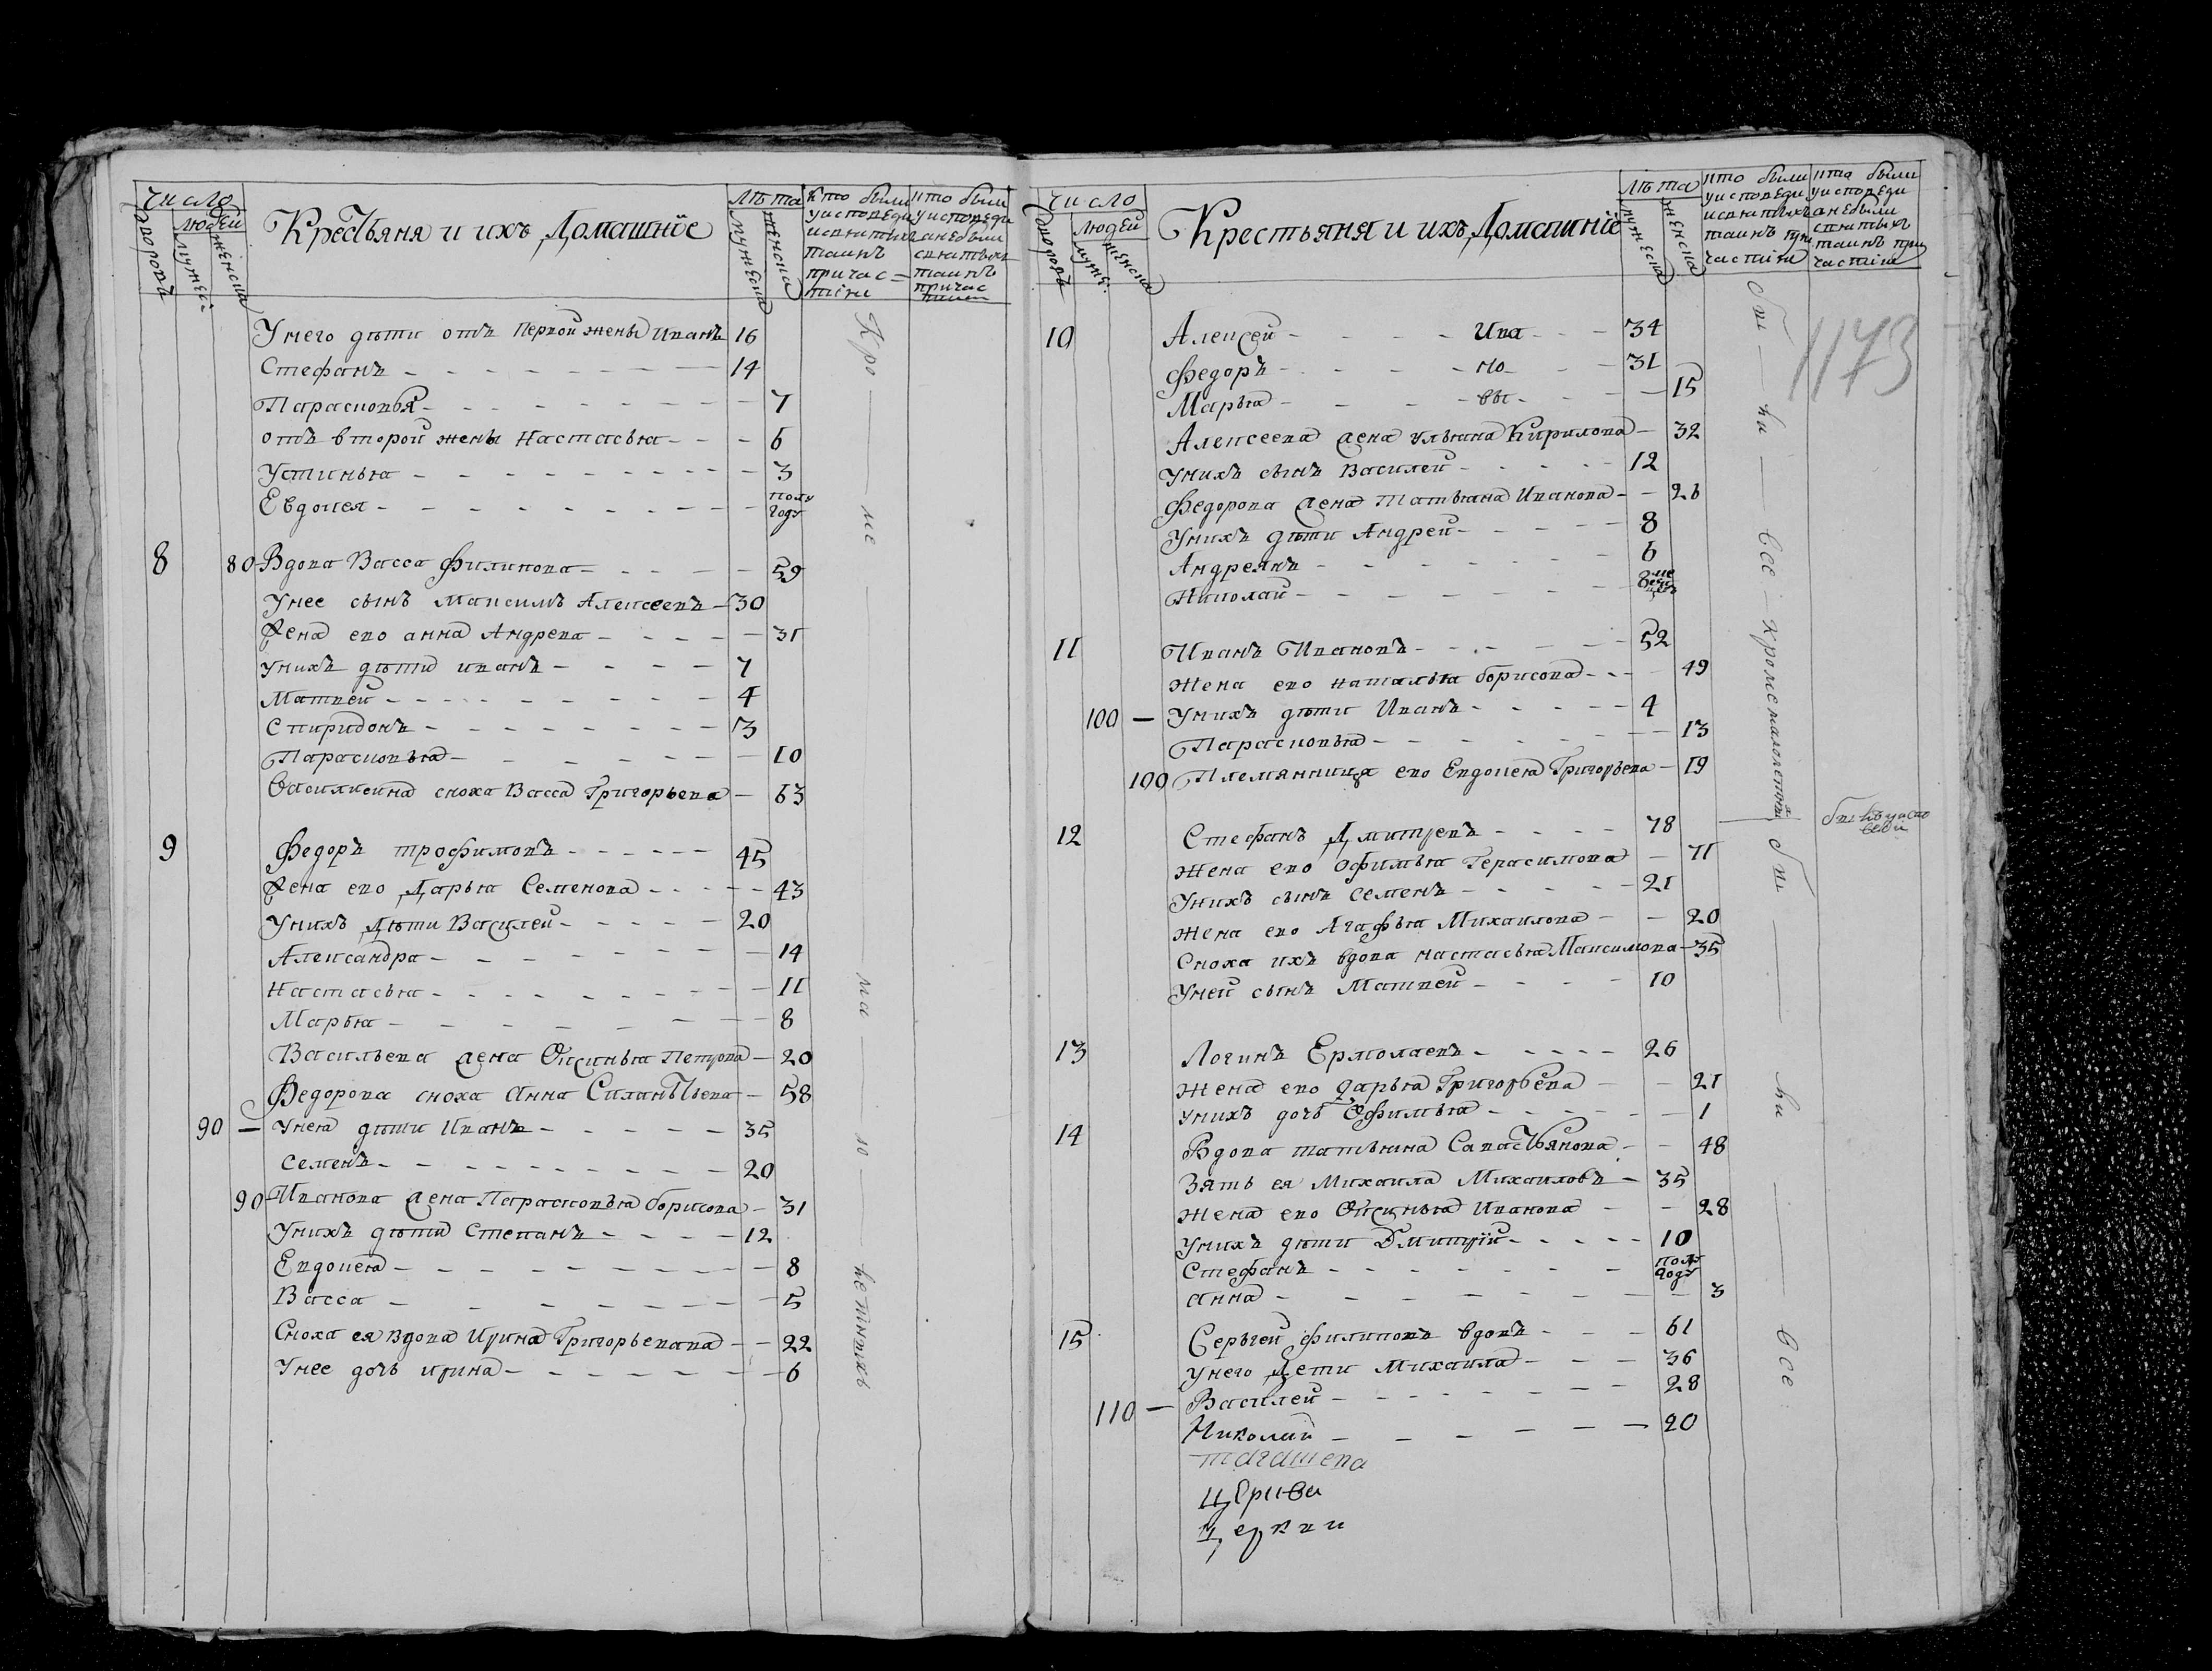 число
людей
дворовъ
мужей
женска
Крестьяня и ихъ Домашнїе
лѣта
мужеска
женска
кто были
у исповеди
и святыхъ
таинъ
причас-
тіни
кто были
у исповеди
а небыли
святыхъ
таинъ
причас
Унего дѣти отъ Первой жены Иванъ 16
Стефанъ 14
Парасковья 7
отъ второй жены Настасья 6
Устинья 3
Евдокея полу году
8 80 Вдова Васса Филипова 59
Унее сынъ Максимъ Алексеевъ 30
Жена ево анна Андрева 31
унихъ дѣти иванъ 7
Матвей 4
Спиридонъ 3
Парасковья 10
сноха Васса Григорьева 63
9 Федоръ трофимовъ 45
Жена ево Дарья Семенова 43
Унихъ Дѣти Василей 20
Александра 14
Настасья 11
Марья 8
Васильева жена Оксинья Петрова 20
Федорова сноха Анна Силантьева 58
90 Унея дѣти Иванъ 35
Семенъ 20
90 Иванова жена Парасковья борисова 31
Унихъ дѣти Степанъ 12
Евдокея 8
Васса 5
Сноха ея вдова Ирина Григорьевава 22
Унее дочь ирина 6
Кро ме ма ло
число
людей
дворовъ
мужей
женска
Крестьяня и ихъ Домашнїе
лѣта
мужеска
женска
кто были
у исповеди
и святыхъ
таинъ при
частіни
кто были
у исповеди
а небыли
святыхъ
таинъ при
частіни
1173
10 Алексей Ива 34
Федоръ но 31
Марья вы 15
Алексеева жена ульяна Кирилова 32
Унихъ сынъ Василей 12
Федорова жена татьяна Иванова 26
Унихъ дѣти Андрей 8
Андреянъ 6
Николай 8 ме сяц
11 Иванъ Ивановъ 52
Жена ево наталья борисова 49
100 Унихъ дѣти Иванъ 4
Парасковья 13
100 Племянница ево Евдокея Григорьева 19
12 Стефанъ Дмитревъ 78
Жена ево Офимья Герасимова 71
Унихъ сынъ Семенъ 21
Жена ево Агафья Михаилова 20
Сноха ихъ вдова настасья Максимова 35
Уней сынъ Матвей 10
13 Логинъ Ермолаевъ 26
Жена ево дарья Григорьева 21
унихъ дочь Офимья 1
14 Вдова татьяна Савастьянова 48
Зять ея Михаила Михаиловъ 35
Жена ево Оксинья Иванова 28
Унихъ дѣти Дмитрїй 10
Стефанъ полу году
анна 3
15 Серьгей филиповъ вдовъ 61
Унего Дети Михаила 36
Василей 28
110 Николай 20
церкви
Церкви
все кроме малолетни
все